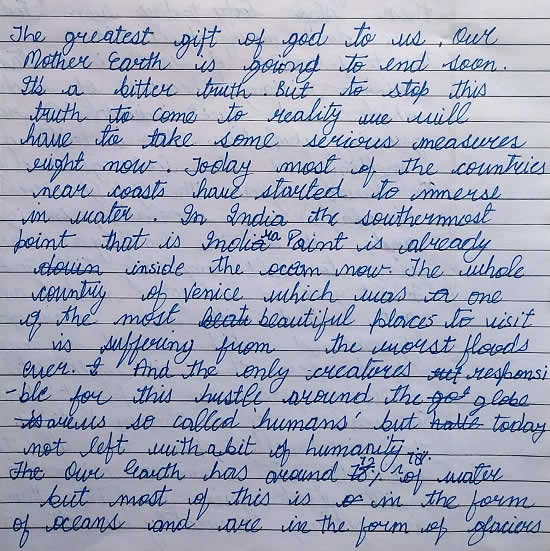 The greatest gift of god to us, Our
Mother Earth is goiong to end soon.
Its a bitter truth. But to stop this
truth to come to reality we will
have to take some serious measures
right now. Today most of the countries
near coasts have started to immerse
in water. In India the southernmost
point that is Indira Point is already
down inside the ocean now. The whole
country of Venice which was one
of the most beautiful places to visit
is suffering from the worst floods
ever. And the only creatures responsi
-ble for this hustle around the globe
are us so called 'humans' but today
not left with a bit of humanity
Our Earth has around of water
but most of this is in the form
of oceans and are in the form of glaciers